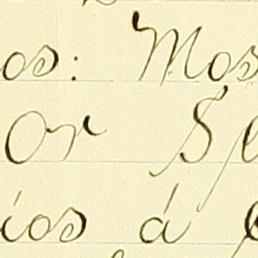 os: Mos
or Se
ios á